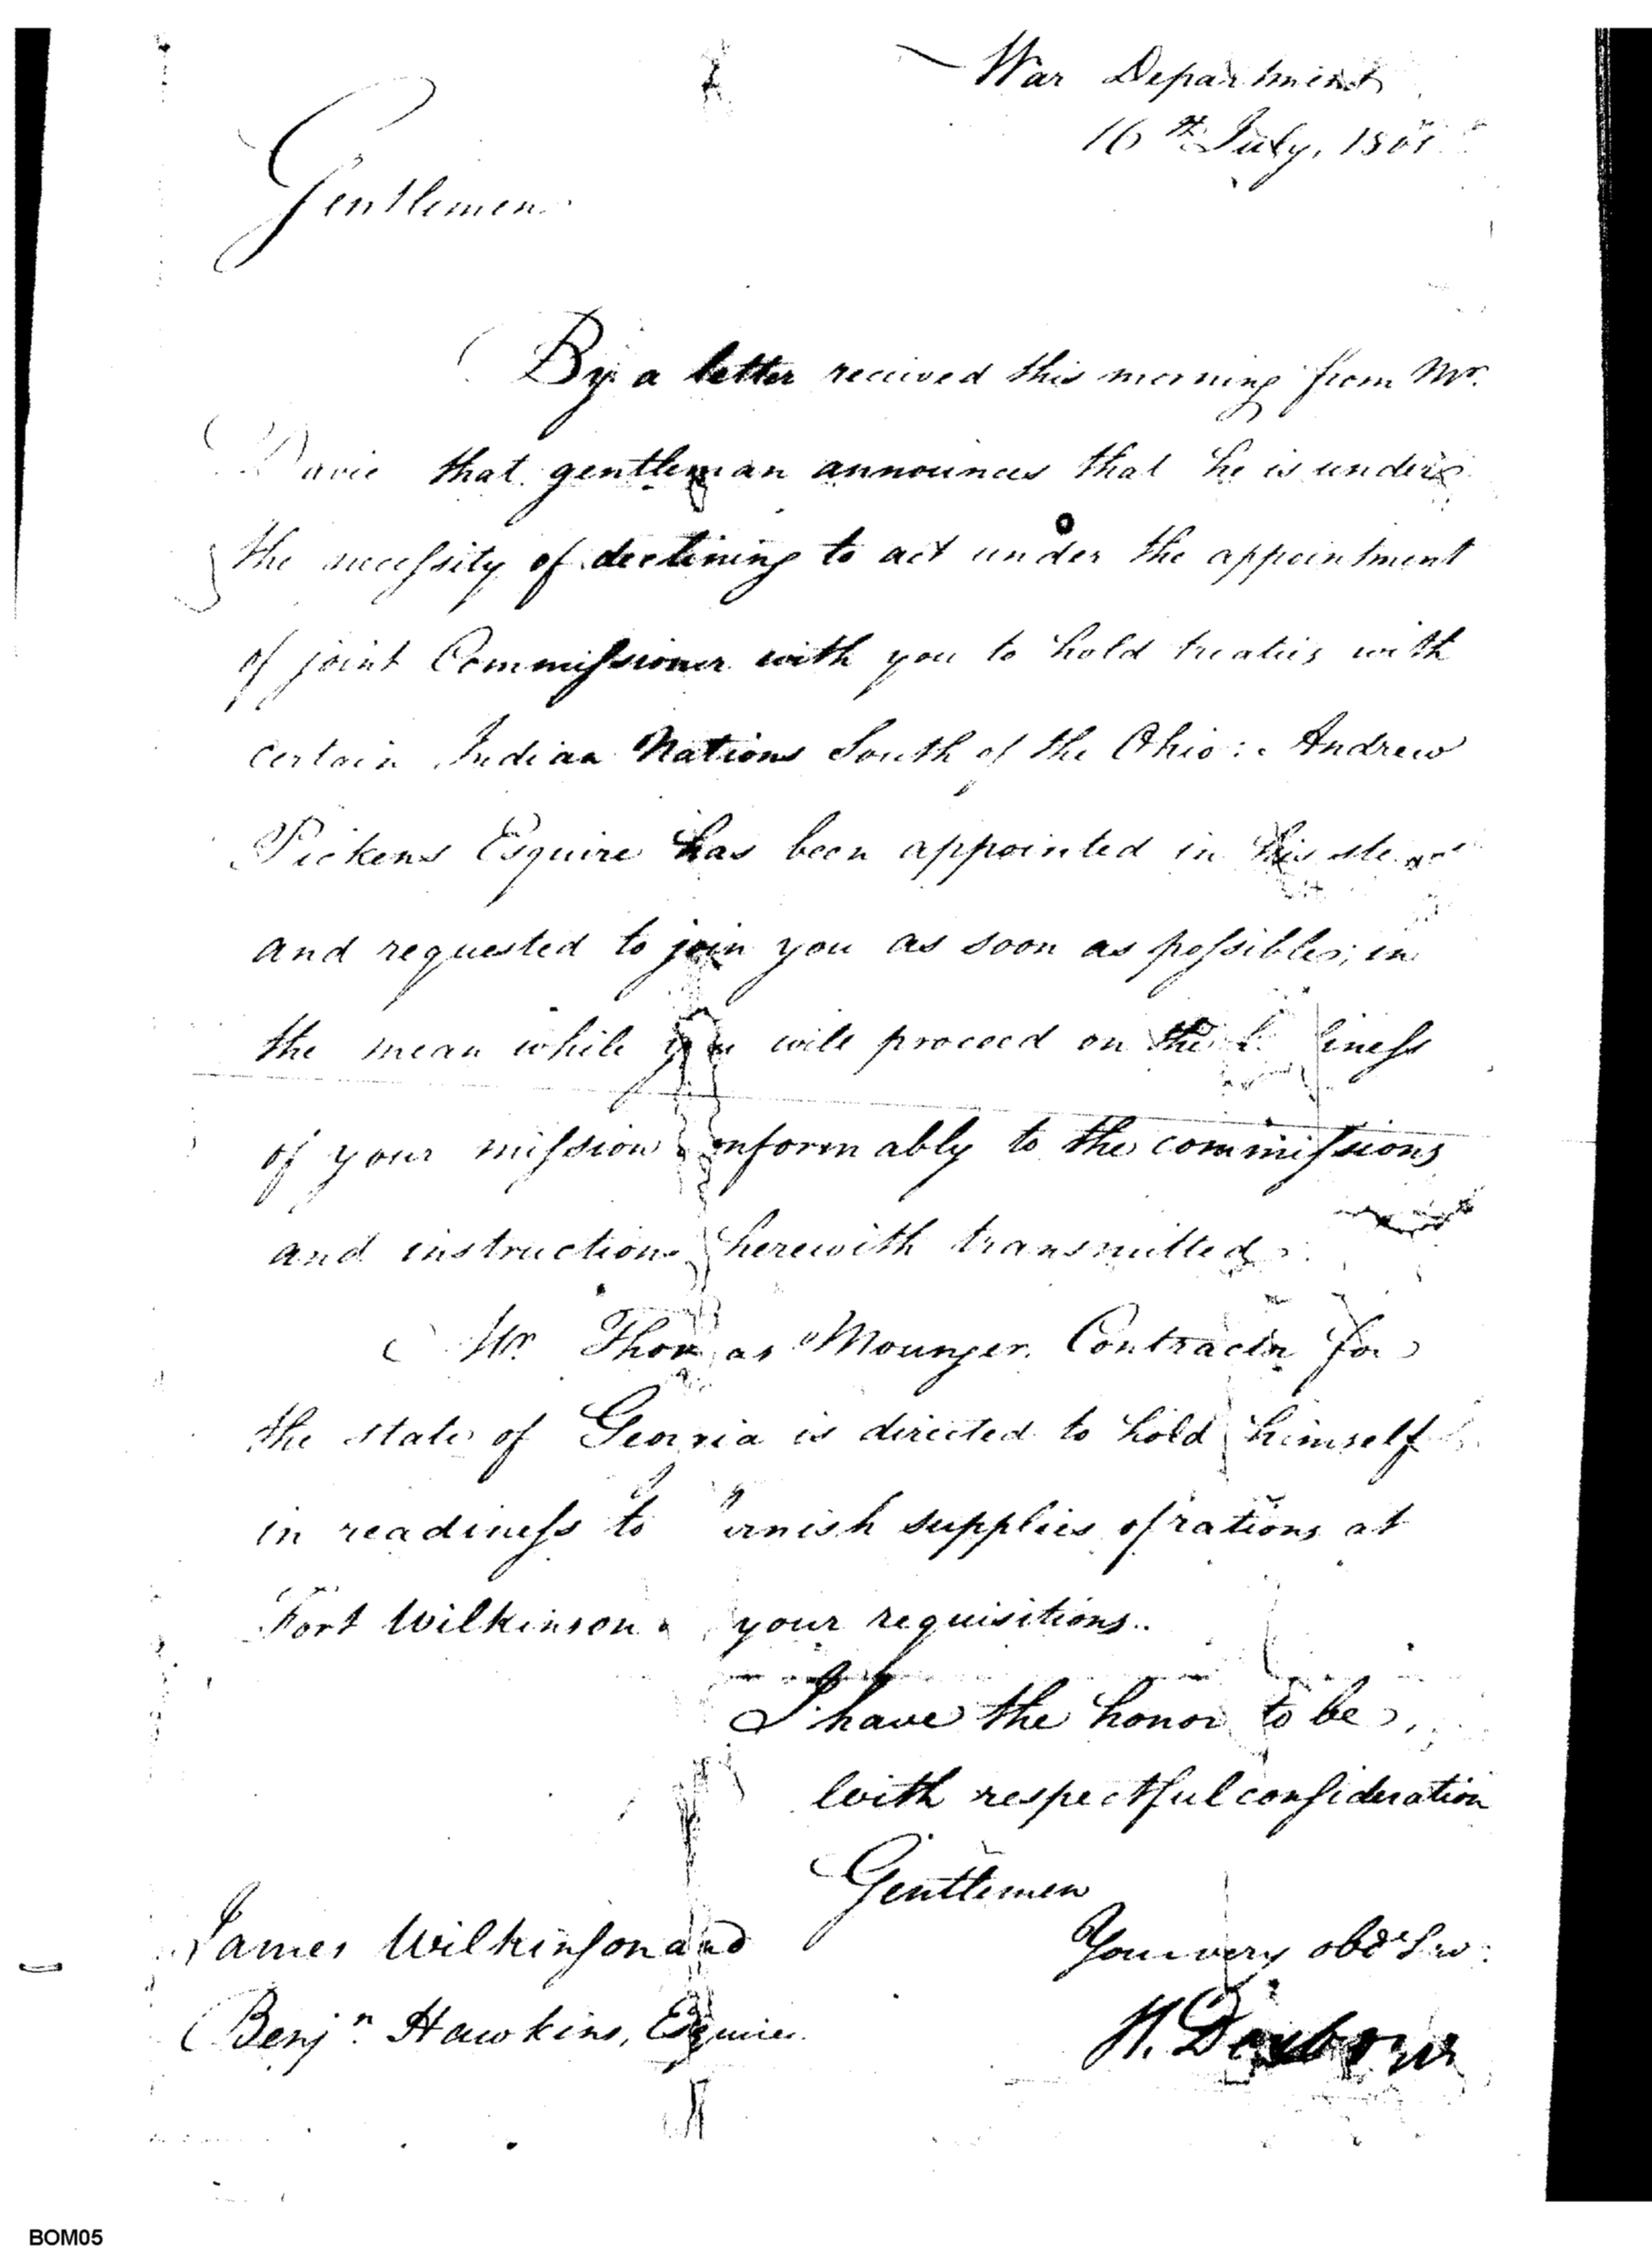 War Department
16th July, 1801
Gentlemen
By a letter received this morning from Mr.
Davie that gentleman announces that he is under
the necessity of declining to act under the appointment
of joint Commissioner with you to hold treaties with
certain Indian Nations South of the Ohio: Andrew
Pickens Esquire has been appointed in his stead
and requested to join you as soon as possible; in
the mean while you will proceed on the business
of your mission conformably to the commissions
and instructions herewith transmitted.
Mr. Thomas Mounger. Contractor for
the state of Georgia is directed to hold himself
in readiness to furnish supplies of rations at
Fort Wilkinson your requisitions.
I have the honor to be,
with respectful consideration
Gentlemen
Your very obdt Sev:
H. Dearborn
James Wilkinson and
Benjn. Hawkins, Esquires.
BOM05